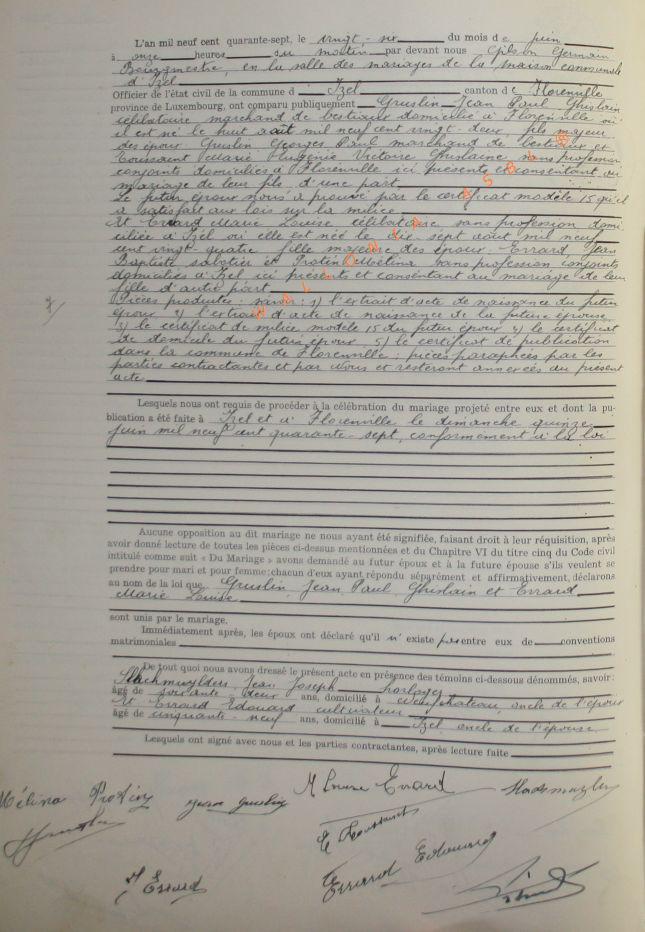 L'an mil neuf cent quarante-sept, le vingt-six du mois de juin
à onze heures du matin par devant nous Gilson Germain
Bourgmestre, en la salle des mariages de la maison communale
d'Izel
Officier de l'état civil de la commune d Izel canton de Florenville
province de Luxembourg, ont comparu publiquement Gruslin Jean Paul Ghislain
célibataire marchand de bestiaux domicilié à Florenville où
il est né le huit août mil neuf cent vingt-deux, fils majeur
des époux Gruslin Georges Paul marchand de bestiaux et
Toussaint Marie Eugénie Victoire Ghislaine sans profession
conjoints domiciliés à Florenville ici présents et consentant au
mariage de leur fils d'une part
Le futur époux nous a prouvé par le certificat modèle 15 qu'il
a satisfait aux lois sur la milice
Et Errard Marie Louise célibataire sans profession domi-
ciliée à Izel où elle est née le dix sept août mil neuf
cent vingt quatre fille majeure des époux Errard Jean
Baptiste sabotier et Protin Mélina sans profession conjoints
domiciliés à Izel ici présents et consentant au mariage de leur
fille d'autre part
Pièces produites: savoir: 1) l'extrait d'acte de naissance du futur
époux 2) l'extrait d'acte de naissance de la future épouse
3) le certificat de milice modèle 15 du futur époux 4) le certificat
de domicile du futur époux 5) le certificat de publication
dans la commune de Florenville; pièces paraphées par les
parties contractantes et par Nous et resteront annexées au présent
acte
Lesquels nous ont requis de procéder à la célébration du mariage projeté entre eux et dont la pu-
blication a été faite à Izel et à Florenville le dimanche quinze
juin mil neuf cent quarante-sept, conformement à la loi
Aucune opposition au dit mariage ne nous ayant été signifiée, faisant droit à leur réquisition, après
avoir donné lecture de toutes les pièces ci-dessus mentionnées et du Chapitre VI du titre cinq du Code civil
intitulé comme suit « Du Mariage » avons demandé au futur époux et à la future épouse s'ils veulent se
prendre pour mari et pour femme: chacun d'eux ayant répondu séparément et affirmativement, déclarons
au nom de la loi que Gruslin Jean Paul Ghislain et Errard
Marie Louise
sont unis par le mariage.
Immédiatement après, les époux ont déclaré qu'il n'existe pas entre eux de conventions
matrimoniales
De tout quoi nous avons dressé le présent acte en présence des témoins ci-dessous dénommés, savoir:
Jean Joseph horloger
âgé de soixante-deux ans, domicilié à Neufchâteau, oncle de l'époux
Et Errard Edouard cultivateur
âgé de cinquante-neuf ans, domicilié à Izel oncle de l'épouse
Lesquels ont signé avec nous et les parties contractantes, après lecture faite
M Louise Errard
Mélina Protin
E Toussaint
Errard Edouard
J Errard